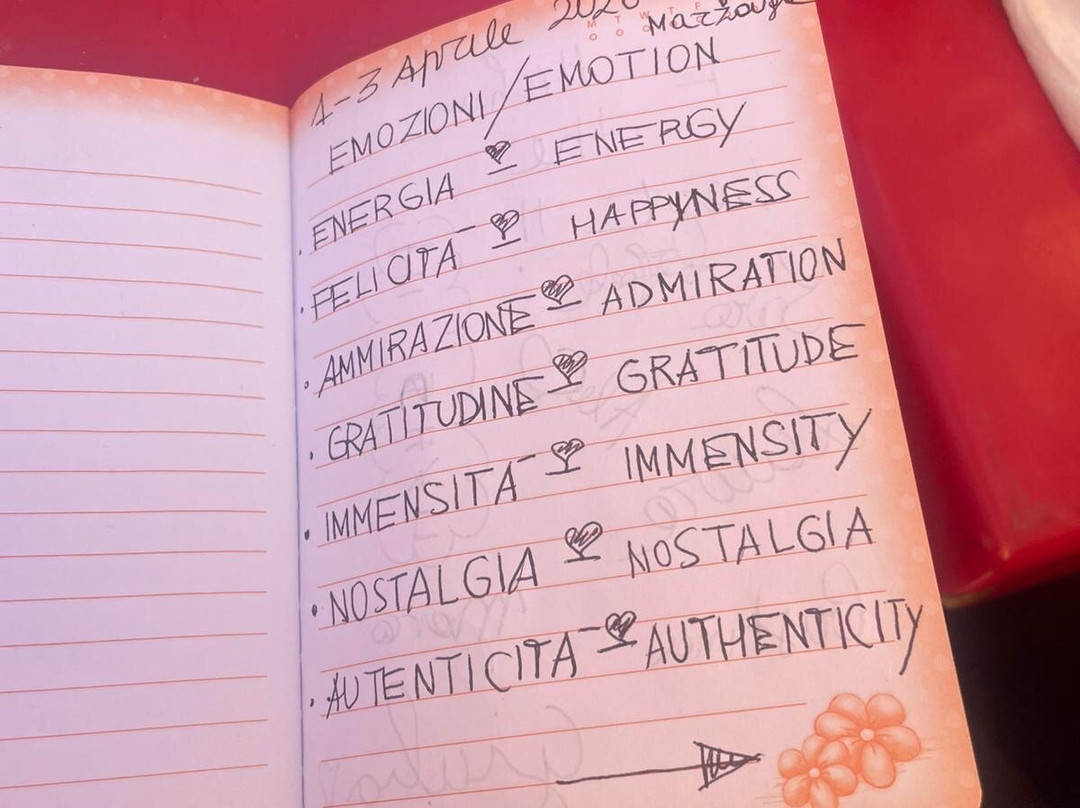 1-3 Aprile
M T W T F
EMOZIONI/EMOTION
ENERGIA ENERGY
FELICITA HAPPYNESS
AMMIRAZIONE ADMIRATION
GRATITUDINE GRATITUDE
IMMENSITA IMMENSITY
NOSTALGIA NOSTALGIA
AUTENTICITA AUTHENTICITY